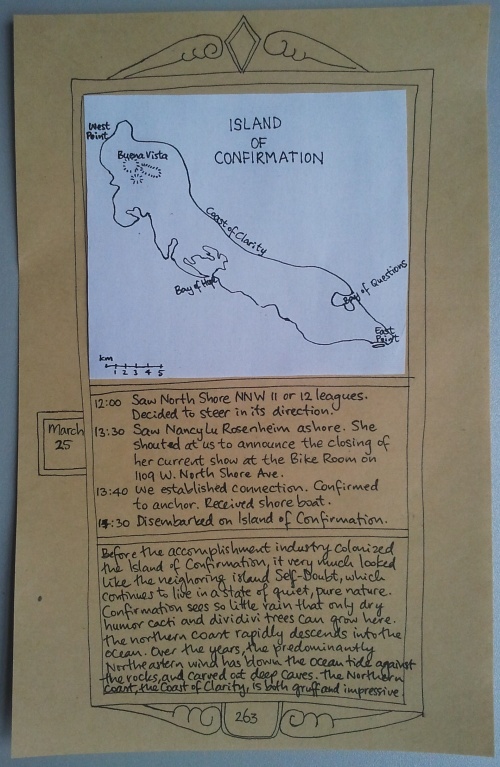 ISLAND
OF
CONFIRMATION
West
Point
Buena Vista
Coast of Clarity
Bay of Hope
Bay of Questions
East
Point
km
1 2 3 4 5
March
25
12:00 Saw North Shore NNW 11 or 12 leagues.
Decided to steer in its direction.
13:30 Saw Nancy Lu Rosenheim ashore. She
shouted at us to announce the closing of
her current show at the Bike Room on
1109 W. North Shore Ave.
13:40 We established connection. Confirmed
to anchor. Received shore boat.
14:30 Disembarked on Island of Confirmation.
Before the accomplishment industry colonized
the Island of Confirmation, it very much looked
like the neighoring island Self-Doubt, which
continues to live in a state of quiet, pure nature.
Confirmation sees so little rain that only dry
humor cacti and dividivi trees can grow here.
The northern coast rapidly descends into the
ocean. Over the years, the predominantly
Northeastern wind has blown the ocean tide against
the rocks, and carved out deep caves. The Northern
Coast, the Coast of Clarity, is both gruff and impressive.
263